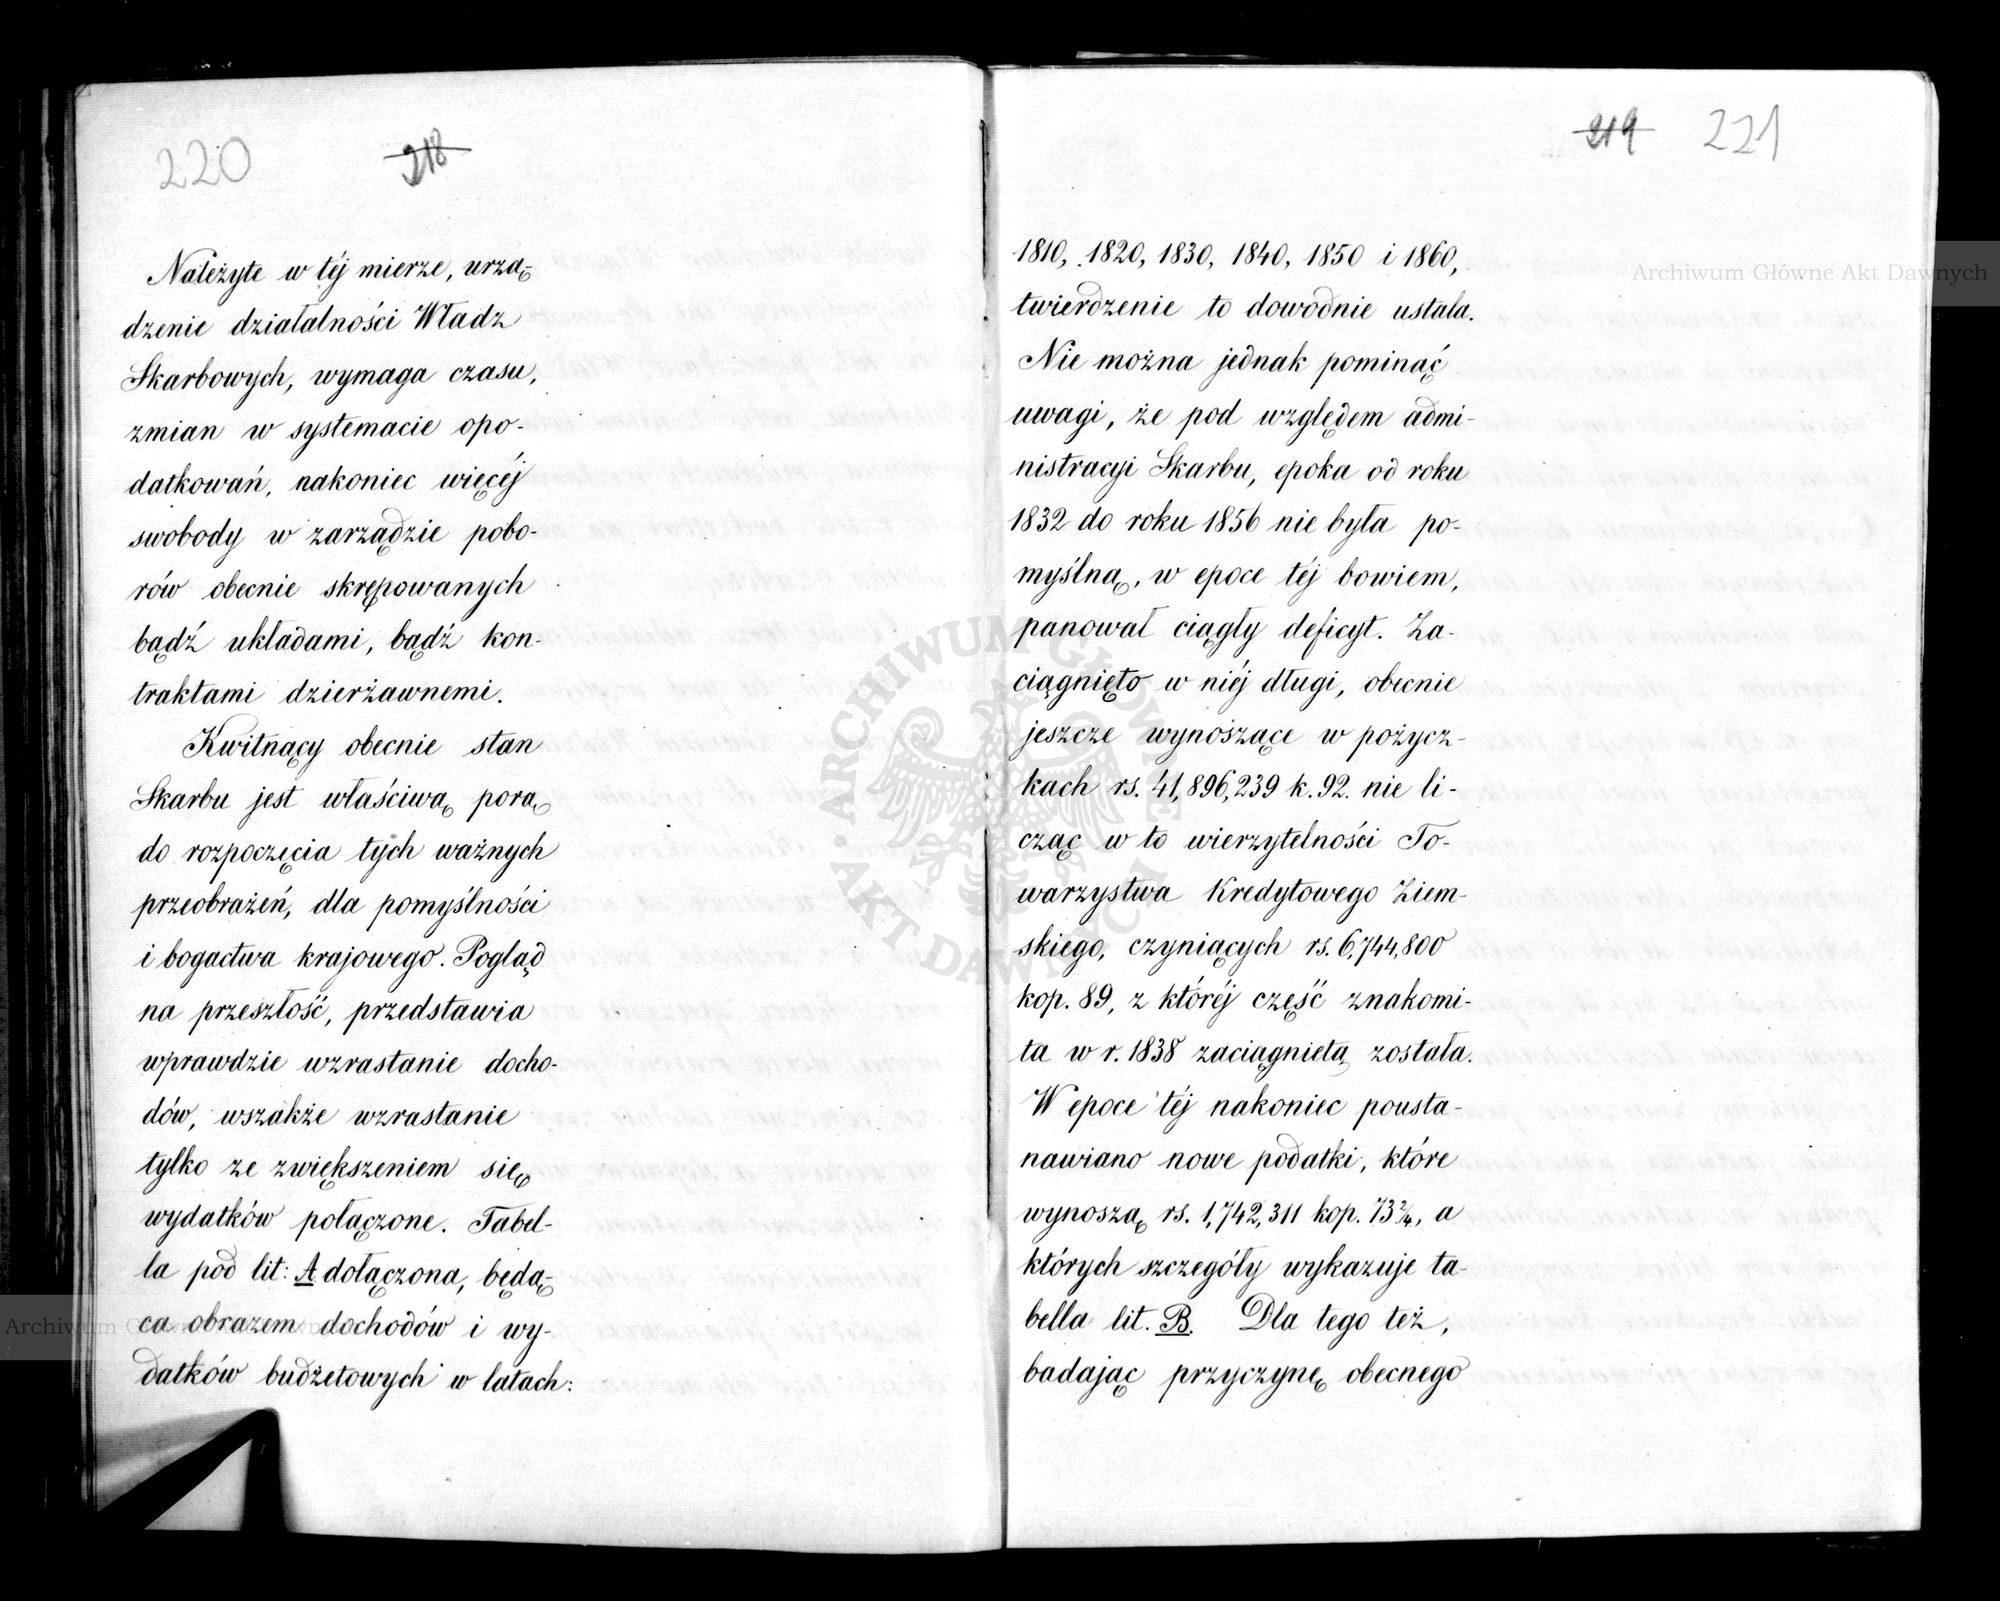 220 218
Należyte w téj mierze, urzą-
dzenie działalności Władz
Skarbowych, wymaga czasu,
zmian w systemacie opo-
datkowań, nakoniec więcéj
swobody w zarządzie pobo-
rów obecnie skrępowanych
bądź układami, bądź kon-
traktami dzierżawnemi.
Kwitnący obecnie stan
Skarbu jest właściwą porą
do rozpoczęcia tych ważnych
przeobrażeń, dla pomyślności
i bogactwa krajowego. Pogląd
na przeszłość, przedstawia
wprawdzie wzrastanie docho-
dów, wszakże wzrastanie
tylko ze zwiększeniem się
wydatków połączone. Tabel-
la pod lit: A dołączona, będą-
ca obrazem dochodów i wy-
datków budżetowych w latach:
219 221
1810, 1820, 1830, 1840, 1850 i 1860,
twierdzenie to dowodnie ustala.
Nie można jednak pominąć
uwagi, że pod względem admi-
nistracyi Skarbu, epoka od roku
1832 do roku 1856 nie była po-
myślną, w epoce téj bowiem,
panował ciągły deficyt. Za-
ciągnięto w niéj długi, obecnie
jeszcze wynoszące w pożycz-
kach rs. 41,896,239 k. 92. nie li-
cząc w to wierzytelności To-
warzystwa Kredytowego Ziem-
skiego, czyniących rs. 6,744,800
kop. 89, z któréj część znakomi-
ta w r. 1838 zaciągnietą została.
W epoce téj nakoniec pousta-
nawiano nowe podatki, które
wynoszą rs. 1,742,311 kop. 73 2/4, a
których szczegóły wykazuje ta-
bella lit. B. Dla tego też,
badając przyczynę obecnego
Archiwum Główne Akt Dawnych
ARCHIWUM GŁÓWNE AKT DAWNYCH